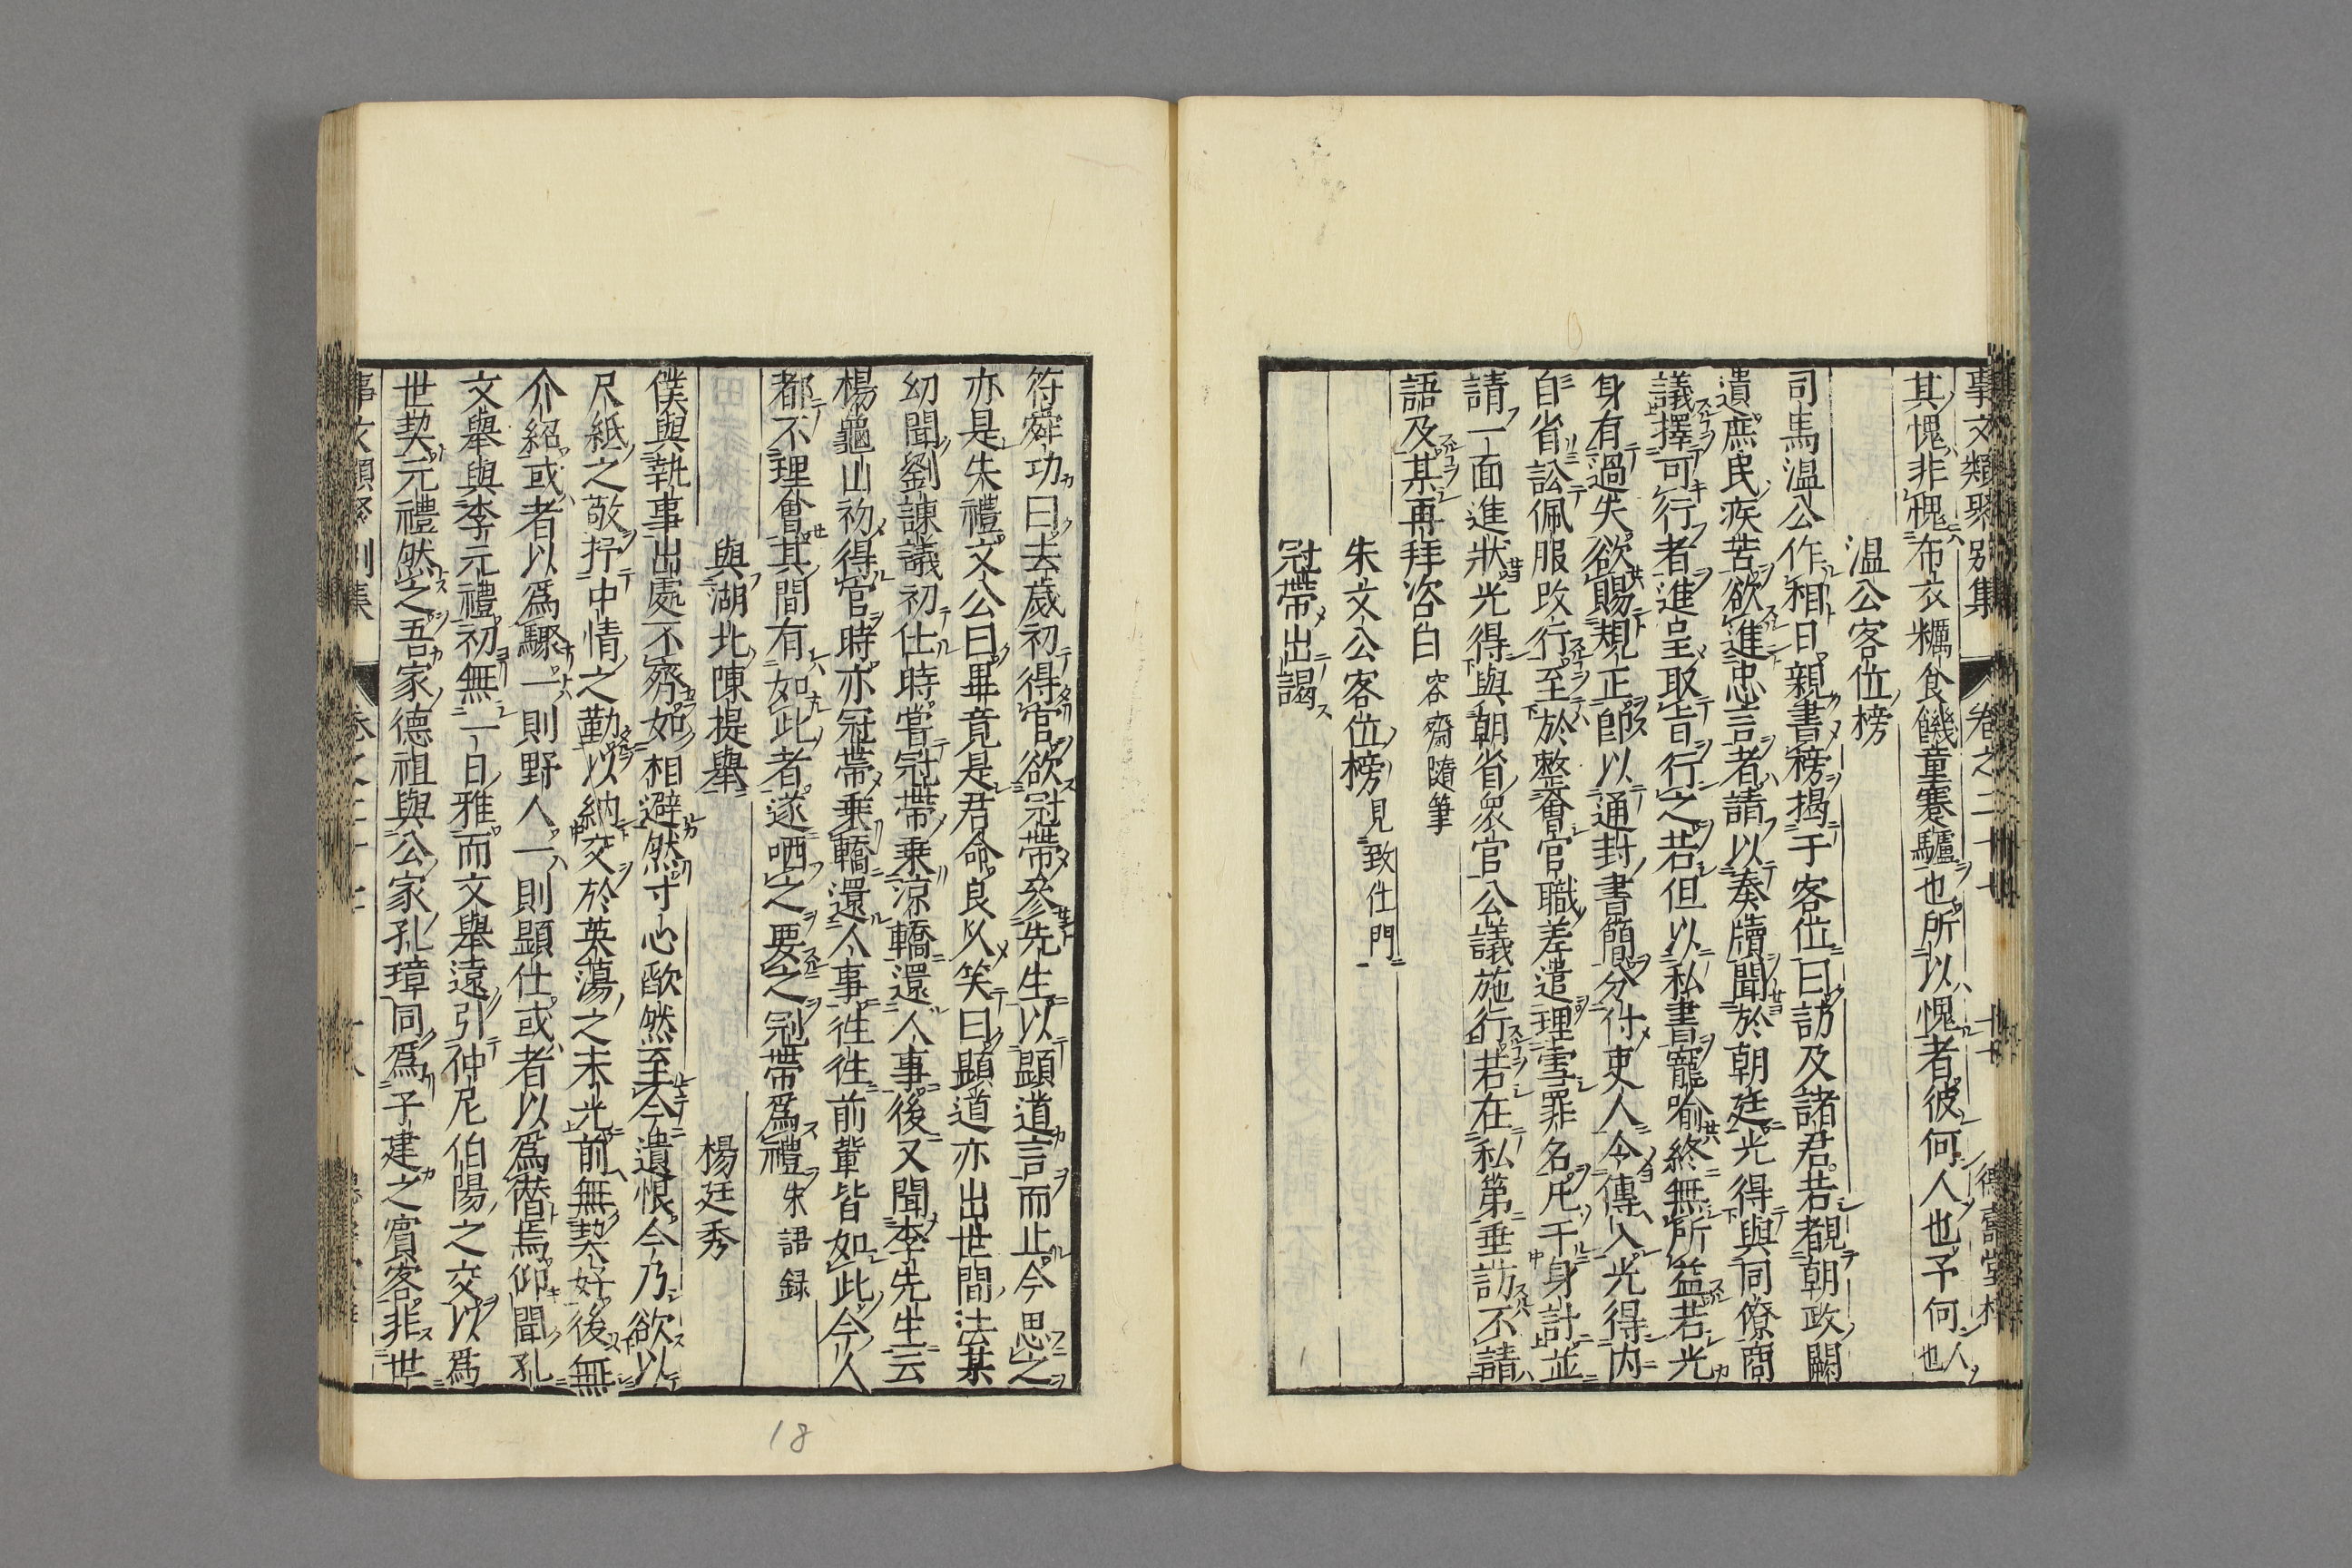 事文類聚別集 卷之二十七 十七 德壽堂梓
其愧非愧布衣糲食饑童蹇驢也所以愧者彼何人也予何人也
温公客位榜
司馬温公作相日親書榜揭于客位曰訪及諸君若覩朝政闕
遺庶民疾苦欲進忠言者請以奏牘聞於朝廷光得與同僚商
議擇可行者進呈取旨行之若但以私書寵喻終無所益若光
身有過失欲賜規正即以通封書簡分付吏人令傳入光得内
自省訟佩服改行至於整會官職差遣理雪罪名凡干身計並
請一面進狀光得與朝省衆官公議施行若在私第垂訪不請
語及某再拜咨白 容齋隨筆
朱文公客位榜 見致仕門
冠帶出謁
符舜功曰去歲初得官欲冠帶參先生以顯道言而止今思之
亦是朱禮文公曰畢竟是君命良久笑曰顯道亦出世間法某
幼聞劉諫議初仕時嘗冠帶乗凉轎還人事後又聞李先生云
楊龜山初得官時亦冠帶乗轎還人事徃徃前輩皆如此今人
都不理會其間有如此者遂哂之要之冠帶爲禮 朱語録
與湖北陳提舉 楊廷秀
僕與執事出處不齊如相避然寸心歐然至今遺恨今乃欲以
尺紙之敬抒中情之勤以納交於英蕩之末光前無契好後無
介紹或者以爲驟一則野人一則顯仕或者以爲僭焉仰聞孔
文舉與李元禮初無一日雅而文舉遠引仲尼伯陽之交以爲
世契元禮然之吾家德祖與公家孔璋同爲子建之賓客非世
事文類聚別集 卷之二十七 十八